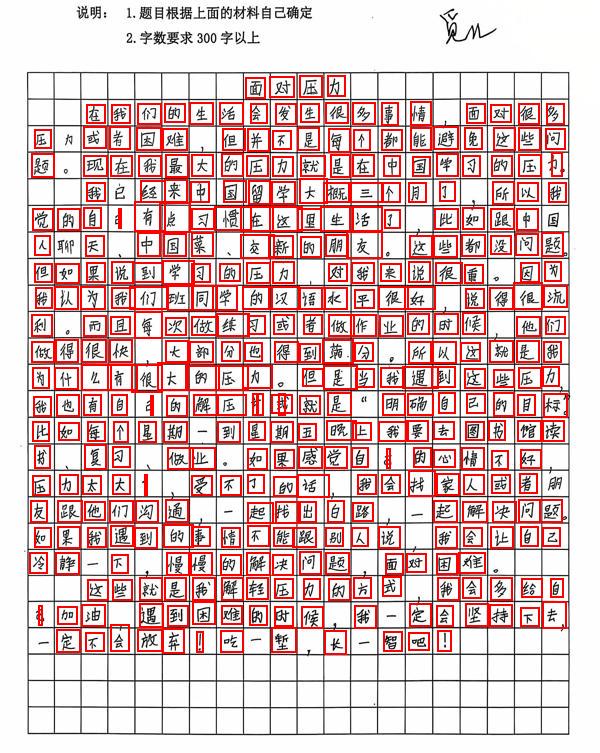 说明： 1.题目根据上面的材料自己确定
2.字数要求300字以上
面对压力
在我们的生活会发生很多事情，面对很多
压力或者困难，但并不是每个都能避免这些问
题。现在我最大的压力就是在中国学习的压力。
我已经来中国留学大概三个月了，所以我
觉的自己有点习惯在这里生活了，比如跟中国
人聊天、中国菜、交新的朋友。这些都没问题。
但如果说到学习的压力，对我来说很重。因为
我认为我们班同学的汉语水平很好，说得很流
利。而且每次做练习或者做作业的时候，他们
做得很快，大部分也得到满分。所以这就是我
为什么有很大的压力。但是当我遇到这些压力，
我也有自己的解压，我就是“明确自己的目标”
比如每个星期一到星期五晚上我要去图书馆读
书、复习、做业。如果感觉自己的心情不好，
压力太大了，受不了的话，我会找家人或者朋
友跟他们沟通，一起找出百路，一起解决问题。
如果我遇到的事情不能跟别人说，我会让自己
冷静一下，慢慢的解决问题，面对困难。
这些就是我解轻压力的方式，我会多给自
己加油，遇到困难的时候，我一定会坚持下去，
一定不会放弃！吃一堑，长一智吧！